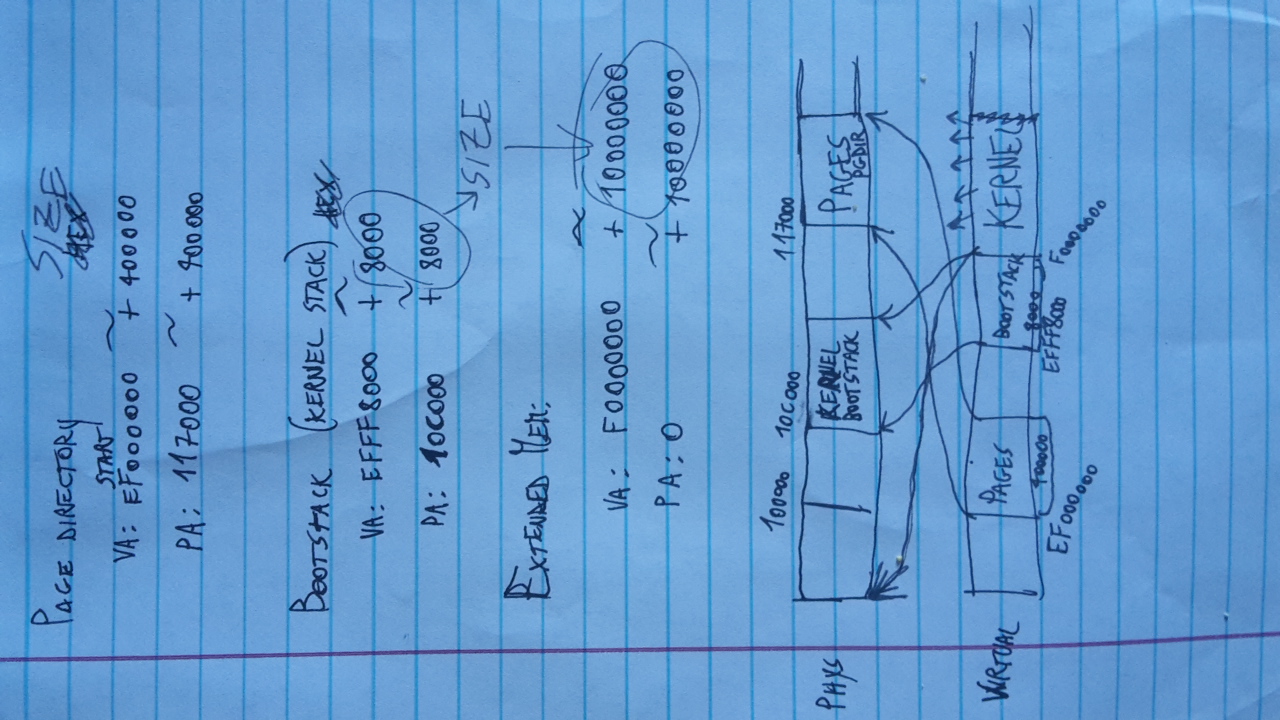 PAGE DIRECTORY SIZE
START
VA: EF000000 ~ + 400000
PA: 117000 ~ + 400000
BOOTSTACK (KERNEL STACK)
VA: EFFF8000 ~ + 8000
PA: 10C000 ~ + 8000
SIZE
EXTENDED MEM:
VA: F0000000 ~ + 10000000
PA: 0 ~ + 10000000
100000 10C000 117000
PHYS KERNEL BOOTSTACK PAGES PGDIR
VIRTUAL PAGES BOOTSTACK KERNEL
400000 8000
EF000000 EFFF8000 F0000000